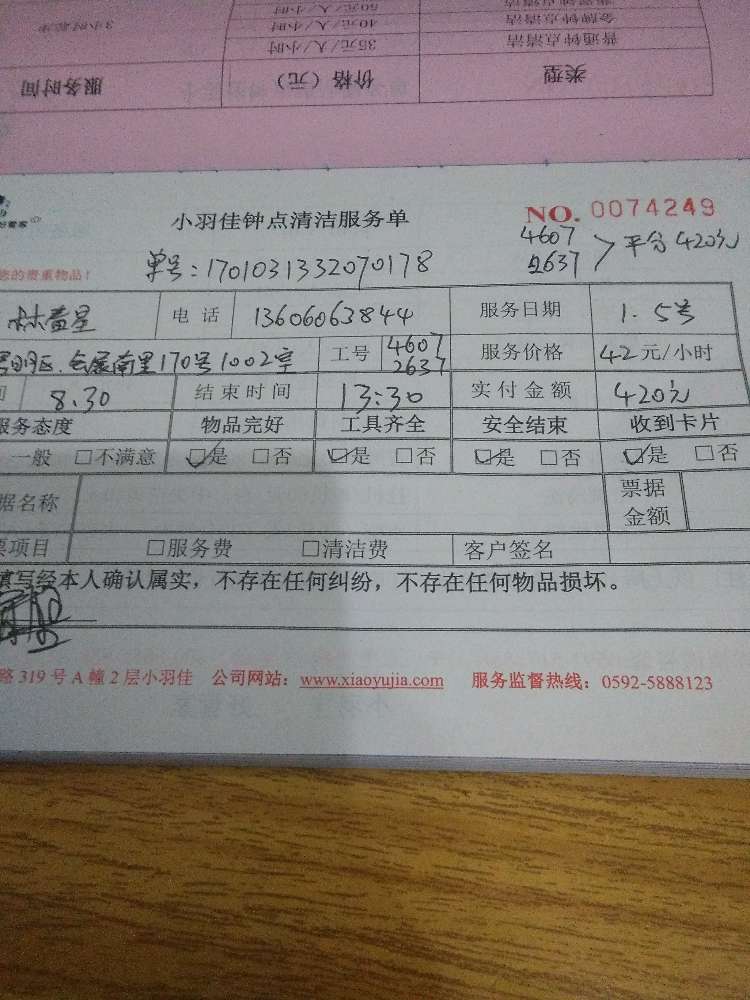 50元/人/小时
金牌钟点清洁 40元/人/小时 3小时起步
普通钟点清洁 35元/人/小时
类型 价格（元） 服务时间
小羽佳钟点清洁服务单 NO. 0074249
4607
2637 平分420元
您的贵重物品！ 单号：1701031332070178
电话 13606063844 服务日期 1.5号
会展南里170号1002室 工号 4607 2637 服务价格 42元/小时
8.30 结束时间 13:30 实付金额 420元
服务态度 物品完好 工具齐全 安全结束 收到卡片
一般 □不满意 ☑是 □否 ☑是 □否 ☑是 □否 ☑是 □否
据名称 票据金额
票项目 □服务费 □清洁费 客户签名
填写经本人确认属实，不存在任何纠纷，不存在任何物品损坏。
路319号A幢2层小羽佳 公司网站：www.xiaoyujia.com 服务监督热线：0592-5888123